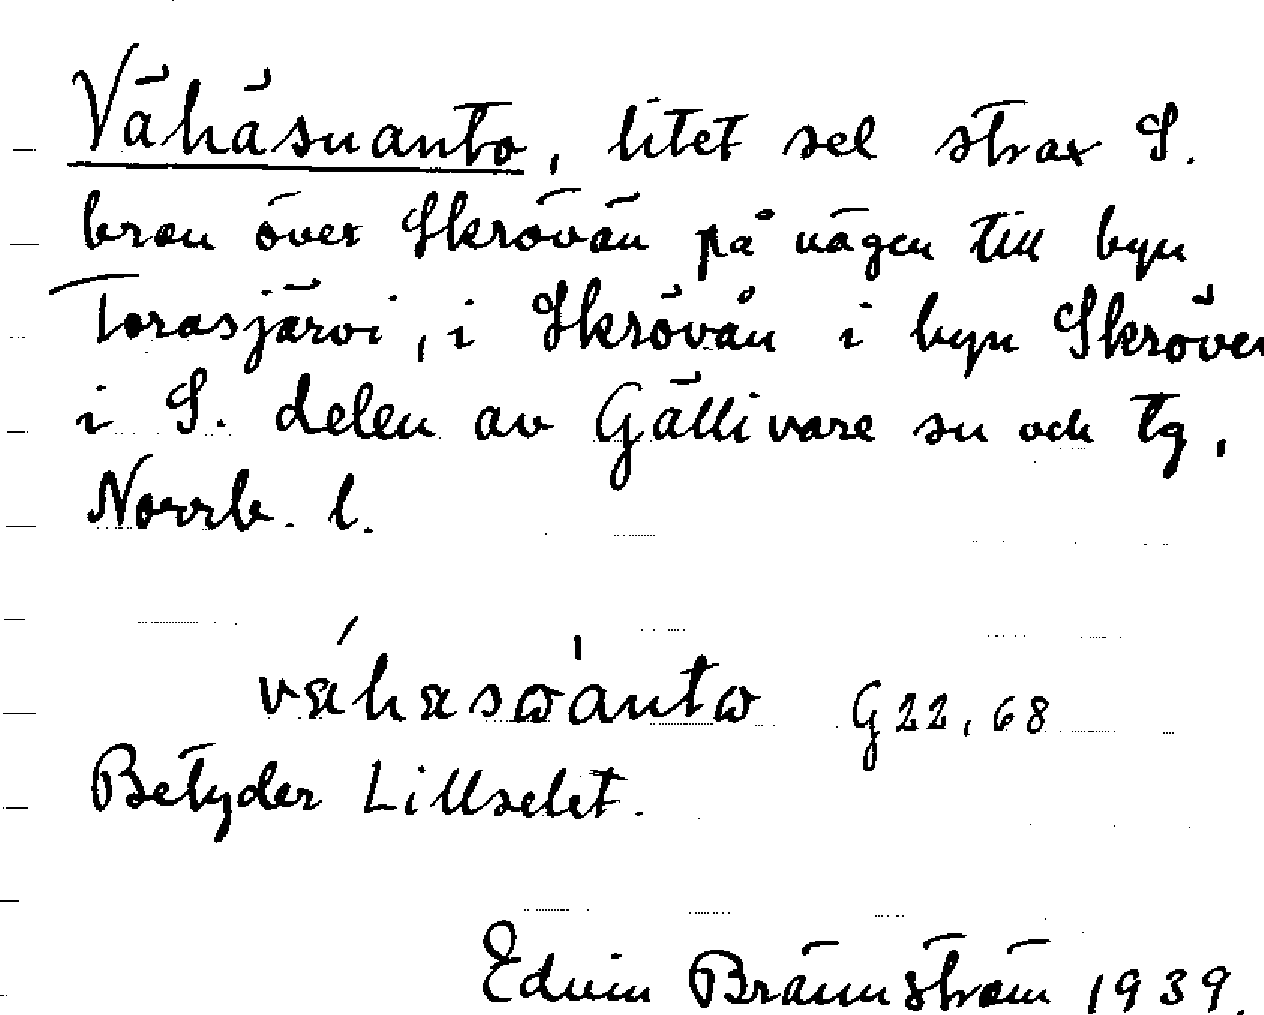 Vähäsuanto, litet sel strax S.
bron över Skröván på vägen till byn
Torasjärvi, i Skrövån i byn Skröven
i S. delen av Gällivare sn och tg,
Norrb. l.
vǽhæsω̍antω G22,68
Betyder Lillselet.
Edvin Brännström 1939.